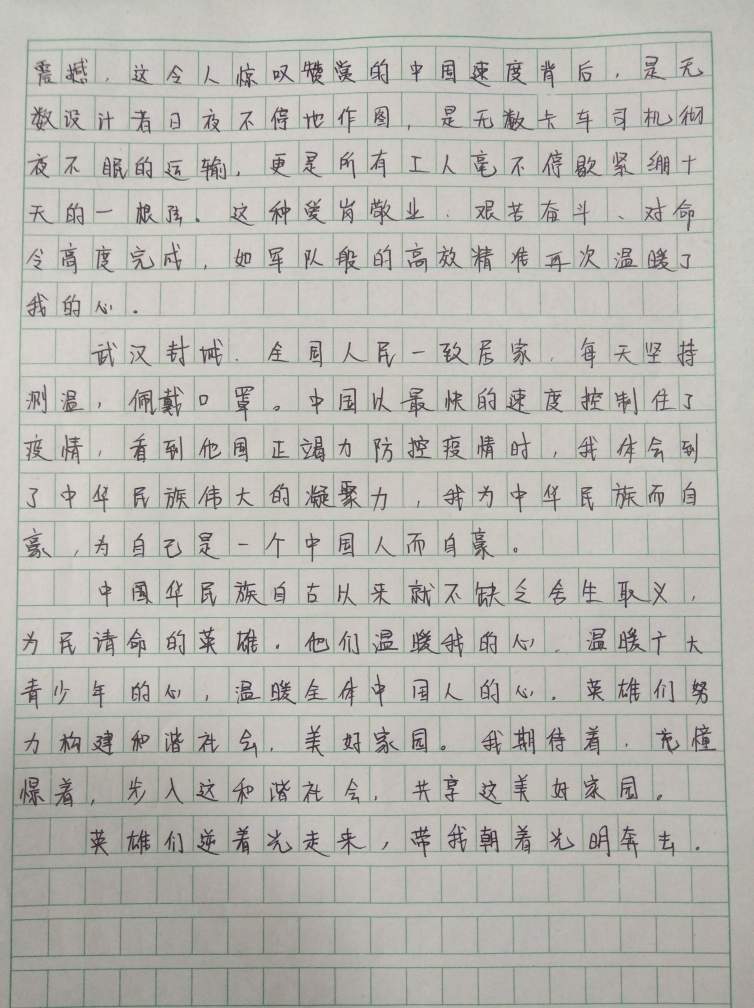 震撼，这令人惊叹赞赏的中国速度背后，是无
数设计者日夜不停地作图，是无数卡车司机彻
夜不眠的运输，更是所有工人毫不停歇紧绷十
天的一根弦。这种爱岗敬业、艰苦奋斗、对命
令高度完成，如军队般的高效精准再次温暖了
我的心。
武汉封城，全国人民一致居家，每天坚持
测温，佩戴口罩。中国以最快的速度控制住了
疫情，看到他国正竭力防控疫情时，我体会到
了中华民族伟大的凝聚力，我为中华民族而自
豪，为自己是一个中国人而自豪。
中国华民族自古以来就不缺乏舍生取义，
为民请命的英雄。他们温暖我的心，温暖广大
青少年的心，温暖全体中国人的心。英雄们努
力构建和谐社会，美好家园。我期待着，充憧
憬着，步入这和谐社会，共享这美好家园。
英雄们逆着光走来，带我朝着光明奔去。